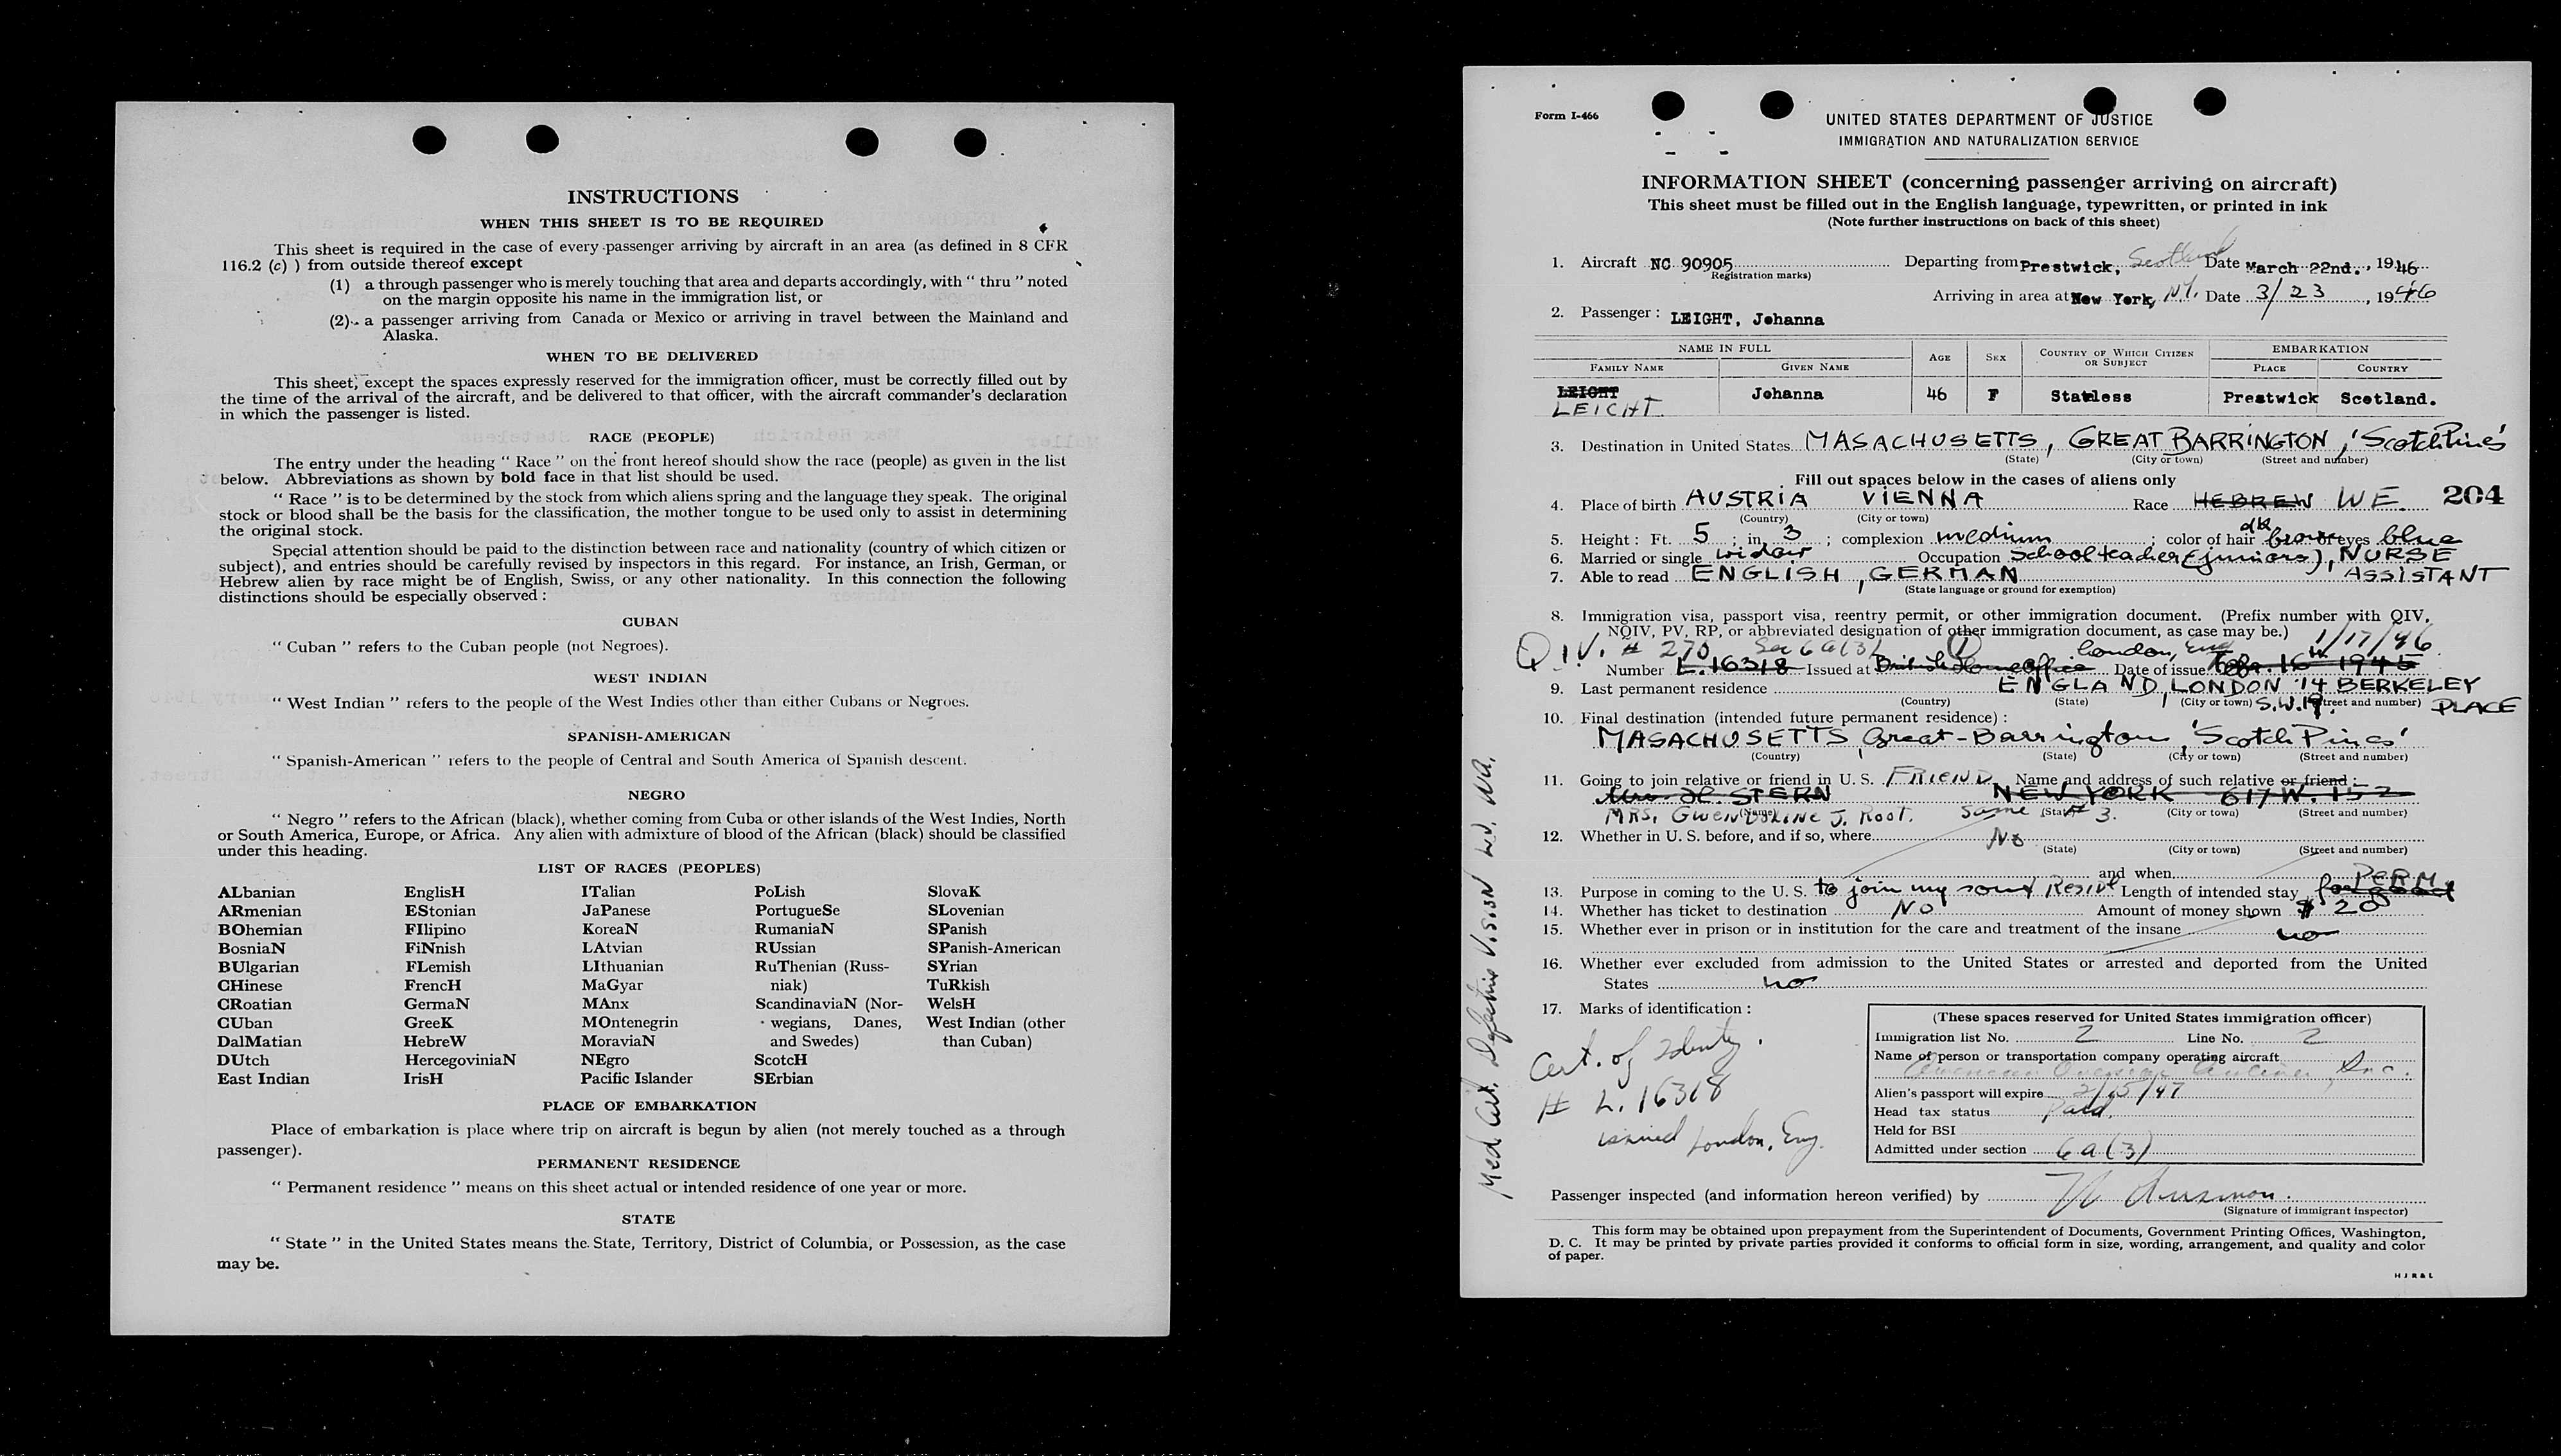 INSTRUCTIONS
WHEN THIS SHEET IS TO BE REQUIRED
This sheet is required in the case of every passenger arriving by aircraft in an area (as defined in 8 CFR
116.2 (c) ) from outside thereof except
(1) a through passenger who is merely touching that area and departs accordingly, with “ thru ” noted
on the margin opposite his name in the immigration list, or
(2) a passenger arriving from Canada or Mexico or arriving in travel between the Mainland and
Alaska.
WHEN TO BE DELIVERED
This sheet, except the spaces expressly reserved for the immigration officer, must be correctly filled out by
the time of the arrival of the aircraft, and be delivered to that officer, with the aircraft commander's declaration
in which the passenger is listed.
RACE (PEOPLE)
The entry under the heading “ Race ” on the front hereof should show the race (people) as given in the list
below. Abbreviations as shown by bold face in that list should be used.
“ Race ” is to be determined by the stock from which aliens spring and the language they speak. The original
stock or blood shall be the basis for the classification, the mother tongue to be used only to assist in determining
the original stock.
Special attention should be paid to the distinction between race and nationality (country of which citizen or
subject), and entries should be carefully revised by inspectors in this regard. For instance, an Irish, German, or
Hebrew alien by race might be of English, Swiss, or any other nationality. In this connection the following
distinctions should be especially observed :
CUBAN
“ Cuban ” refers to the Cuban people (not Negroes).
WEST INDIAN
“ West Indian ” refers to the people of the West Indies other than either Cubans or Negroes.
SPANISH-AMERICAN
“ Spanish-American ” refers to the people of Central and South America of Spanish descent.
NEGRO
“ Negro ” refers to the African (black), whether coming from Cuba or other islands of the West Indies, North
or South America, Europe, or Africa. Any alien with admixture of blood of the African (black) should be classified
under this heading.
LIST OF RACES (PEOPLES)
ALbanian EnglisH ITalian PoLish SlovaK
ARmenian EStonian JaPanese PortugueSe SLovenian
BOhemian FIlipino KoreaN RumaniaN SPanish
BosniaN FiNnish LAtvian RUssian SPanish-American
BUlgarian FLemish LIthuanian RuThenian (Russ- SYrian
CHinese FrencH MaGyar niak) TuRkish
CRoatian GermaN MAnx ScandinaviaN (Nor- WelsH
CUban GreeK MOntenegrin wegians, Danes, West Indian (other
DalMatian HebreW MoraviaN and Swedes) than Cuban)
DUtch HercegoviniaN NEgro ScotcH
East Indian IrisH Pacific Islander SErbian
PLACE OF EMBARKATION
Place of embarkation is place where trip on aircraft is begun by alien (not merely touched as a through
passenger).
PERMANENT RESIDENCE
“ Permanent residence ” means on this sheet actual or intended residence of one year or more.
STATE
“ State ” in the United States means the State, Territory, District of Columbia, or Possession, as the case
may be.
Form I-466
UNITED STATES DEPARTMENT OF JUSTICE
IMMIGRATION AND NATURALIZATION SERVICE
INFORMATION SHEET (concerning passenger arriving on aircraft)
This sheet must be filled out in the English language, typewritten, or printed in ink
(Note further instructions on back of this sheet)
1. Aircraft NC 90905 Departing from Prestwick, Scotland Date March 22nd. , 1946
(Registration marks)
Arriving in area at New York, NY. Date 3/23, 1946
2. Passenger : LEIGHT, Johanna
NAME IN FULL AGE SEX COUNTRY OF WHICH CITIZEN OR SUBJECT EMBARKATION
FAMILY NAME GIVEN NAME PLACE COUNTRY
LEIGHT Johanna 46 F Stateless Prestwick Scotland.
LEICHT
3. Destination in United States MASACHUSETTS, GREAT BARRINGTON, 'Scotch Pines'
(State) (City or town) (Street and number)
Fill out spaces below in the cases of aliens only
4. Place of birth AUSTRIA VIENNA Race HEBREW WE. 204
(Country) (City or town)
5. Height : Ft. 5 ; in. 3 ; complexion medium ; color of hair dk brown eyes blue
6. Married or single widow Occupation Schoolteacher (juniors), NURSE
7. Able to read ENGLISH, GERMAN ASSISTANT
(State language or ground for exemption)
8. Immigration visa, passport visa, reentry permit, or other immigration document. (Prefix number with QIV,
NQIV, PV, RP, or abbreviated designation of other immigration document, as case may be.) 1/17/46
QIV. # 270 Sec 6a(3) London, Eng
Number L.16318 Issued at British Home Office Date of issue 16th 1945
9. Last permanent residence ENGLAND, LONDON 14 BERKELEY
(Country) (State) (City or town) S.W.19. (Street and number) PLACE
10. Final destination (intended future permanent residence) :
MASACHUSETTS, Great-Barrington, 'Scotch Pines'
(Country) (State) (City or town) (Street and number)
11. Going to join relative or friend in U. S. FRIEND Name and address of such relative or friend :
Mrs. H. STERN NEW YORK 617 W. 152
(Name) (State) (City or town) (Street and number)
MRS. GWENDOLINE J. Root. Same # 3.
12. Whether in U. S. before, and if so, where No
(State) (City or town) (Street and number)
and when
13. Purpose in coming to the U. S. to join my son & Reside Length of intended stay for good PERM.
14. Whether has ticket to destination No Amount of money shown $ 20
15. Whether ever in prison or in institution for the care and treatment of the insane no
16. Whether ever excluded from admission to the United States or arrested and deported from the United
States no
17. Marks of identification :
Cert. of Identity.
# L. 16318
issued London, Eng.
Med Cert. Defective Vision
(These spaces reserved for United States immigration officer)
Immigration list No. 2 Line No. 2
Name of person or transportation company operating aircraft
American Overseas Airlines, Inc.
Alien's passport will expire 2/15/47
Head tax status Paid.
Held for BSI
Admitted under section 6a(3)
Passenger inspected (and information hereon verified) by
(Signature of immigrant inspector)
This form may be obtained upon prepayment from the Superintendent of Documents, Government Printing Offices, Washington,
D. C. It may be printed by private parties provided it conforms to official form in size, wording, arrangement, and quality and color
of paper.
H J R & L